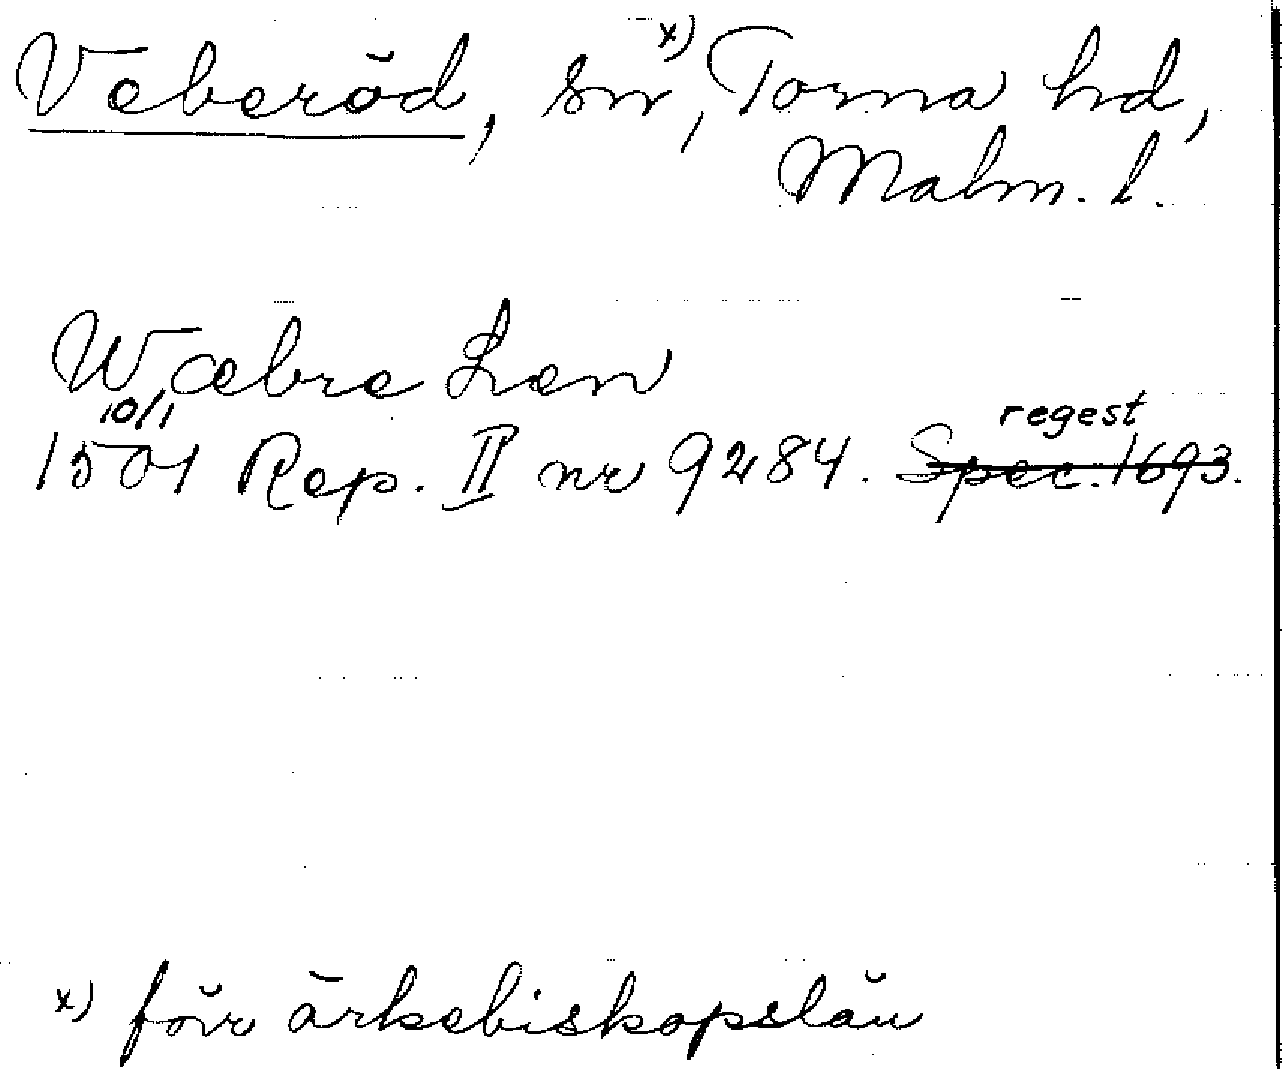 Veberöd, sn x), Torna hd,
Malm. l.
Wæbre Læn
10/1
1501 Rep. II nr 9284. Spec. 1693. regest
x) förr ärkebiskopslän